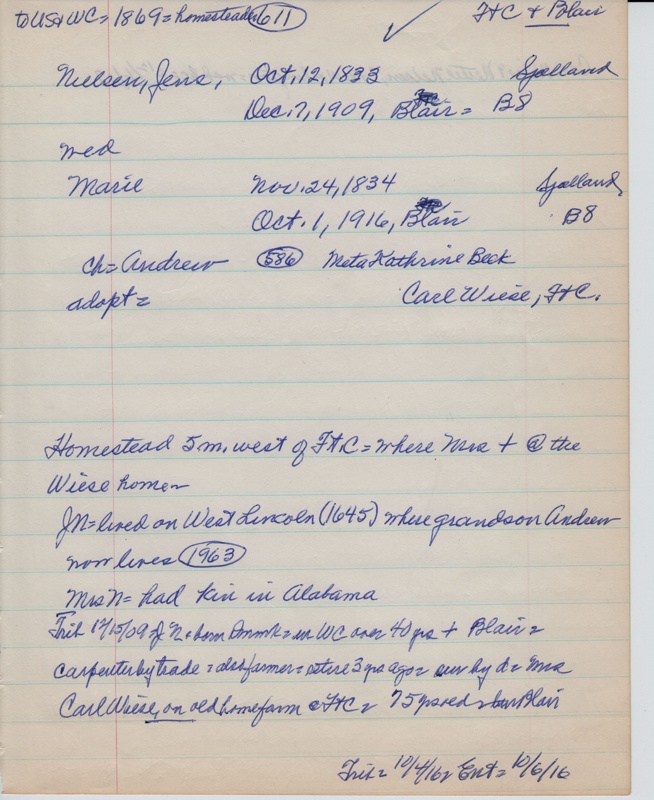 to US & WC = 1869 = homesteader 611 FtC & Blair
Nielsen, Jens, Oct. 12, 1833 Sjolland
Dec. 7, 1909, Blair = B8
wed
Marie Nov. 24, 1834 Sjolland,
Oct. 1, 1916, Blair B8
ch = Andrew 586 Meta Kathrine Beck
adopt = Carl Wiese, FtC.
Homestead 5 m. west of FtC = where Mrs + @ the
Wiese home
JN = lived on West Lincoln (1645) where grandson Andrew
now lives 1963
Mrs N = had kin in Alabama
Trib 12/15/09 = JN = born Dnmk = in WC over 40 yrs + Blair =
carpenter by trade = also farmer = retire 3 yrs ago = sur by d = Mrs
Carl Wiese, on old home farm @ FtC = 75 yrs old = bur Blair
Trib = 10/4/16 = Ent = 10/6/16